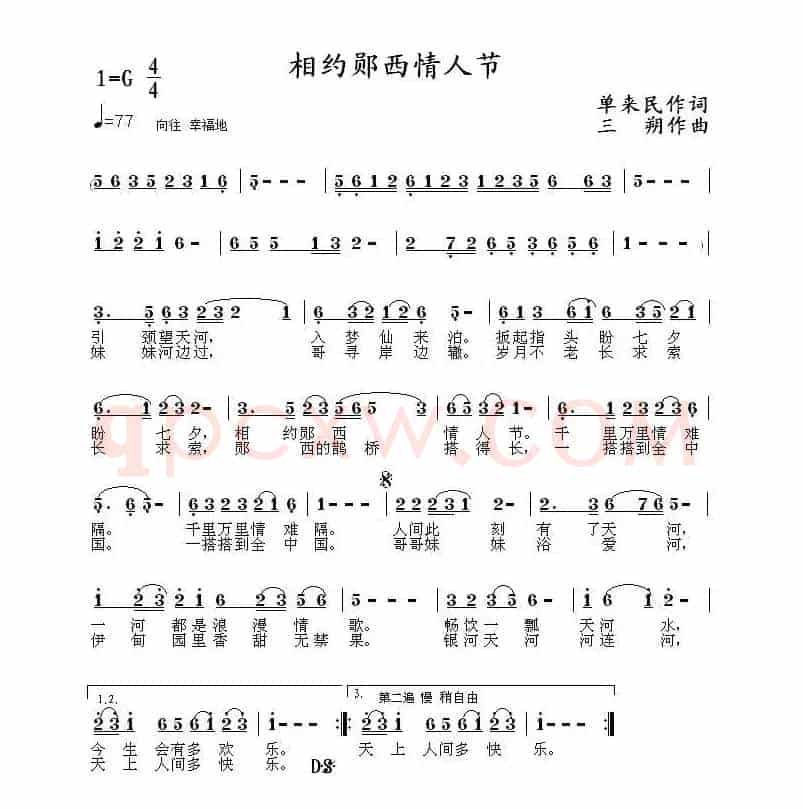 相约郧西情人节
1=G 4/4
♩=77 向往 幸福地
单来民作词
三 朔作曲
(5 6 3 5 2 3 1 6 | 5 - - - | 5 6 1 2 6 1 2 3 1 2 3 5 6 6 3 | 5 - - - |
1 2 2 1 6 - | 6 5 5 1 3 - | 2 7 2 6 5 3 6 5 6 | 1 - - - )|
3. 5 6 3 2 3 2 1 | 6 3 1 2 6 5. | 6 1 3 6 1 6 3 5 6 |
引 颈望天河, 入 梦 仙 来 泊。扳起指 头 盼 七 夕
妹 妹河边过, 哥 寻 岸 边 辙。岁月不 老 长 求 索
6. 1 2 3 2 - | 3. 2 3 5 6 5 3 | 6 5 1 2 3 1 - | 6. 1 3 2 3 2 1 6 |
盼 七 夕,相 约郧 西 情 人 节。千 里万里情 难
长 求 索,郧 西的鹊 桥 搭 得 长,一 搭搭到全 中
5. 6 5 - | 6 3 2 3 2 3 1 6 | 1 - - - | 2 2 2 3 1 2 | 2. 3 6 7 6 | 5 - - - |
隔。 千里万里情 难 隔。 人间此 刻 有 了 天 河,
国。 一搭搭到全 中 国。 哥哥妹 妹 浴 爱 河,
1 2 3 2 3 6 2 3 5 | 5 - - - | 2 3 2 3 5 6 | 1 6 5 6 | 2 - - - |
一 河 都是浪 漫 情 歌。 畅饮一 瓢 天河 水,
伊 甸 园里香 甜 无禁 果。 银河天 河 河连 河,
1.2. 3. 第二遍 慢 稍自由
2 3 1 6 5 6 1 2 3 | 1 - - - :‖: 2 3 1 6 5 6 1 2 3 | 1 - - - :‖
今 生 会有多 欢 乐。 天 上 人间多 快 乐。
天 上 人间多 快 乐。 D.S.
qpcxw.com